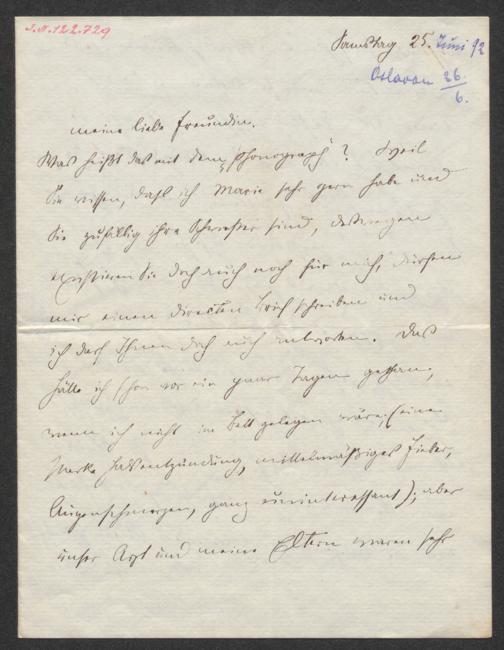 I.N. 122.729
Samstag 25. Juni 92
Oslavan 26.
6.
meine liebe Freundin.
Was heißt das mit dem „Phonograph"? Weil
Sie wissen, dass ich Marie sehr gern habe und
Sie zufällig ihre Schwester sind, deswegen
existieren Sie doch auch noch für mich, dürfen
mir einen directen Brief schreiben und
ich darf Ihnen doch auch antworten. Das
hätte ich schon vor ein paar Tagen gethan,
wenn ich nicht im Bett gelegen wäre; (eine
starke Halsentzündung, mittelmäßiges Fieber,
Augenschmerzen, ganz uninteressant); aber
unser Arzt und meine Eltern waren sehr